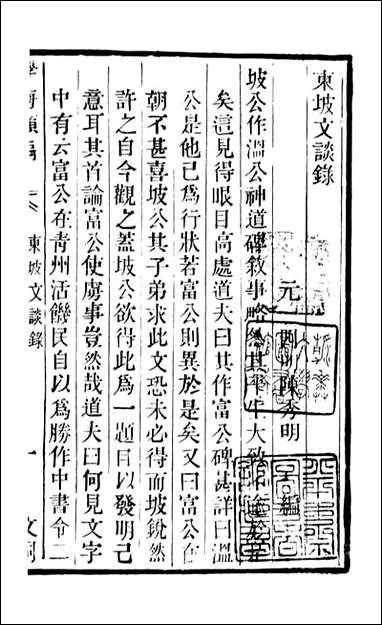 東坡文談錄
元 陳秀明 編
坡公作溫公神道碑敘事略然其平生大致不踰於是
矣這見得眼目高處道夫曰其作富公碑甚詳曰溫
公是他已爲行狀若富公則異於是矣又曰富公在
朝不甚喜坡公其子弟求此文恐未必得而坡銳然
許之自今觀之蓋坡公欲得此爲一題目以發明己
意耳其首論富公使虜事豈然哉道夫曰何見文字
中有云富公在青州活饑民自以爲勝作中書令二
學海類編 東坡文談錄 一